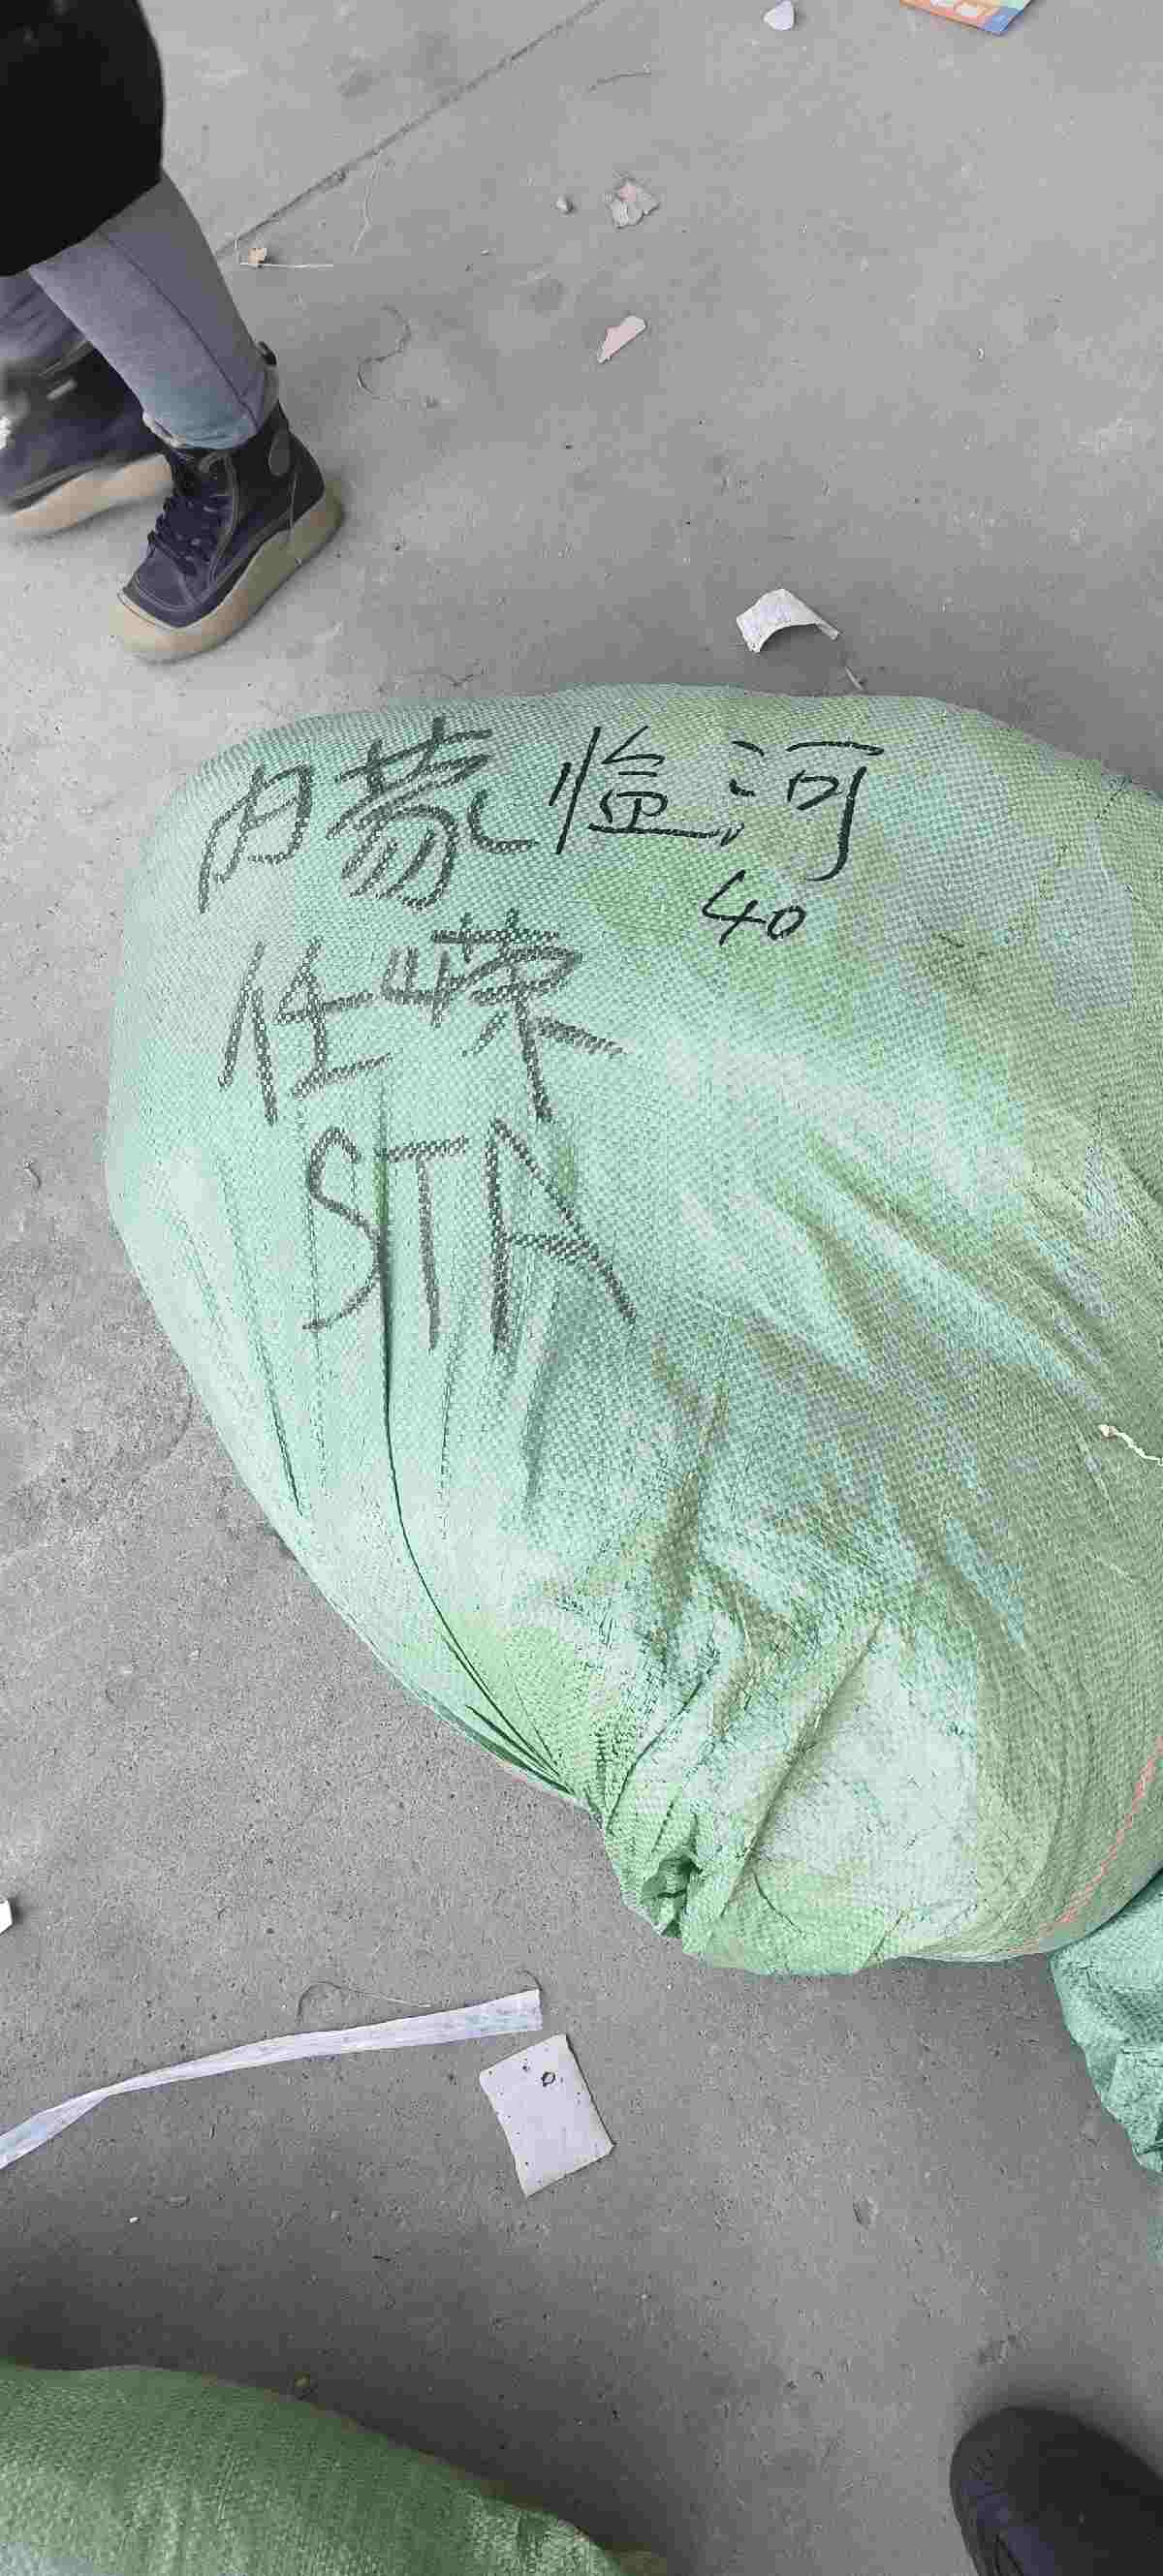 内蒙临河
40
任嵘
STA